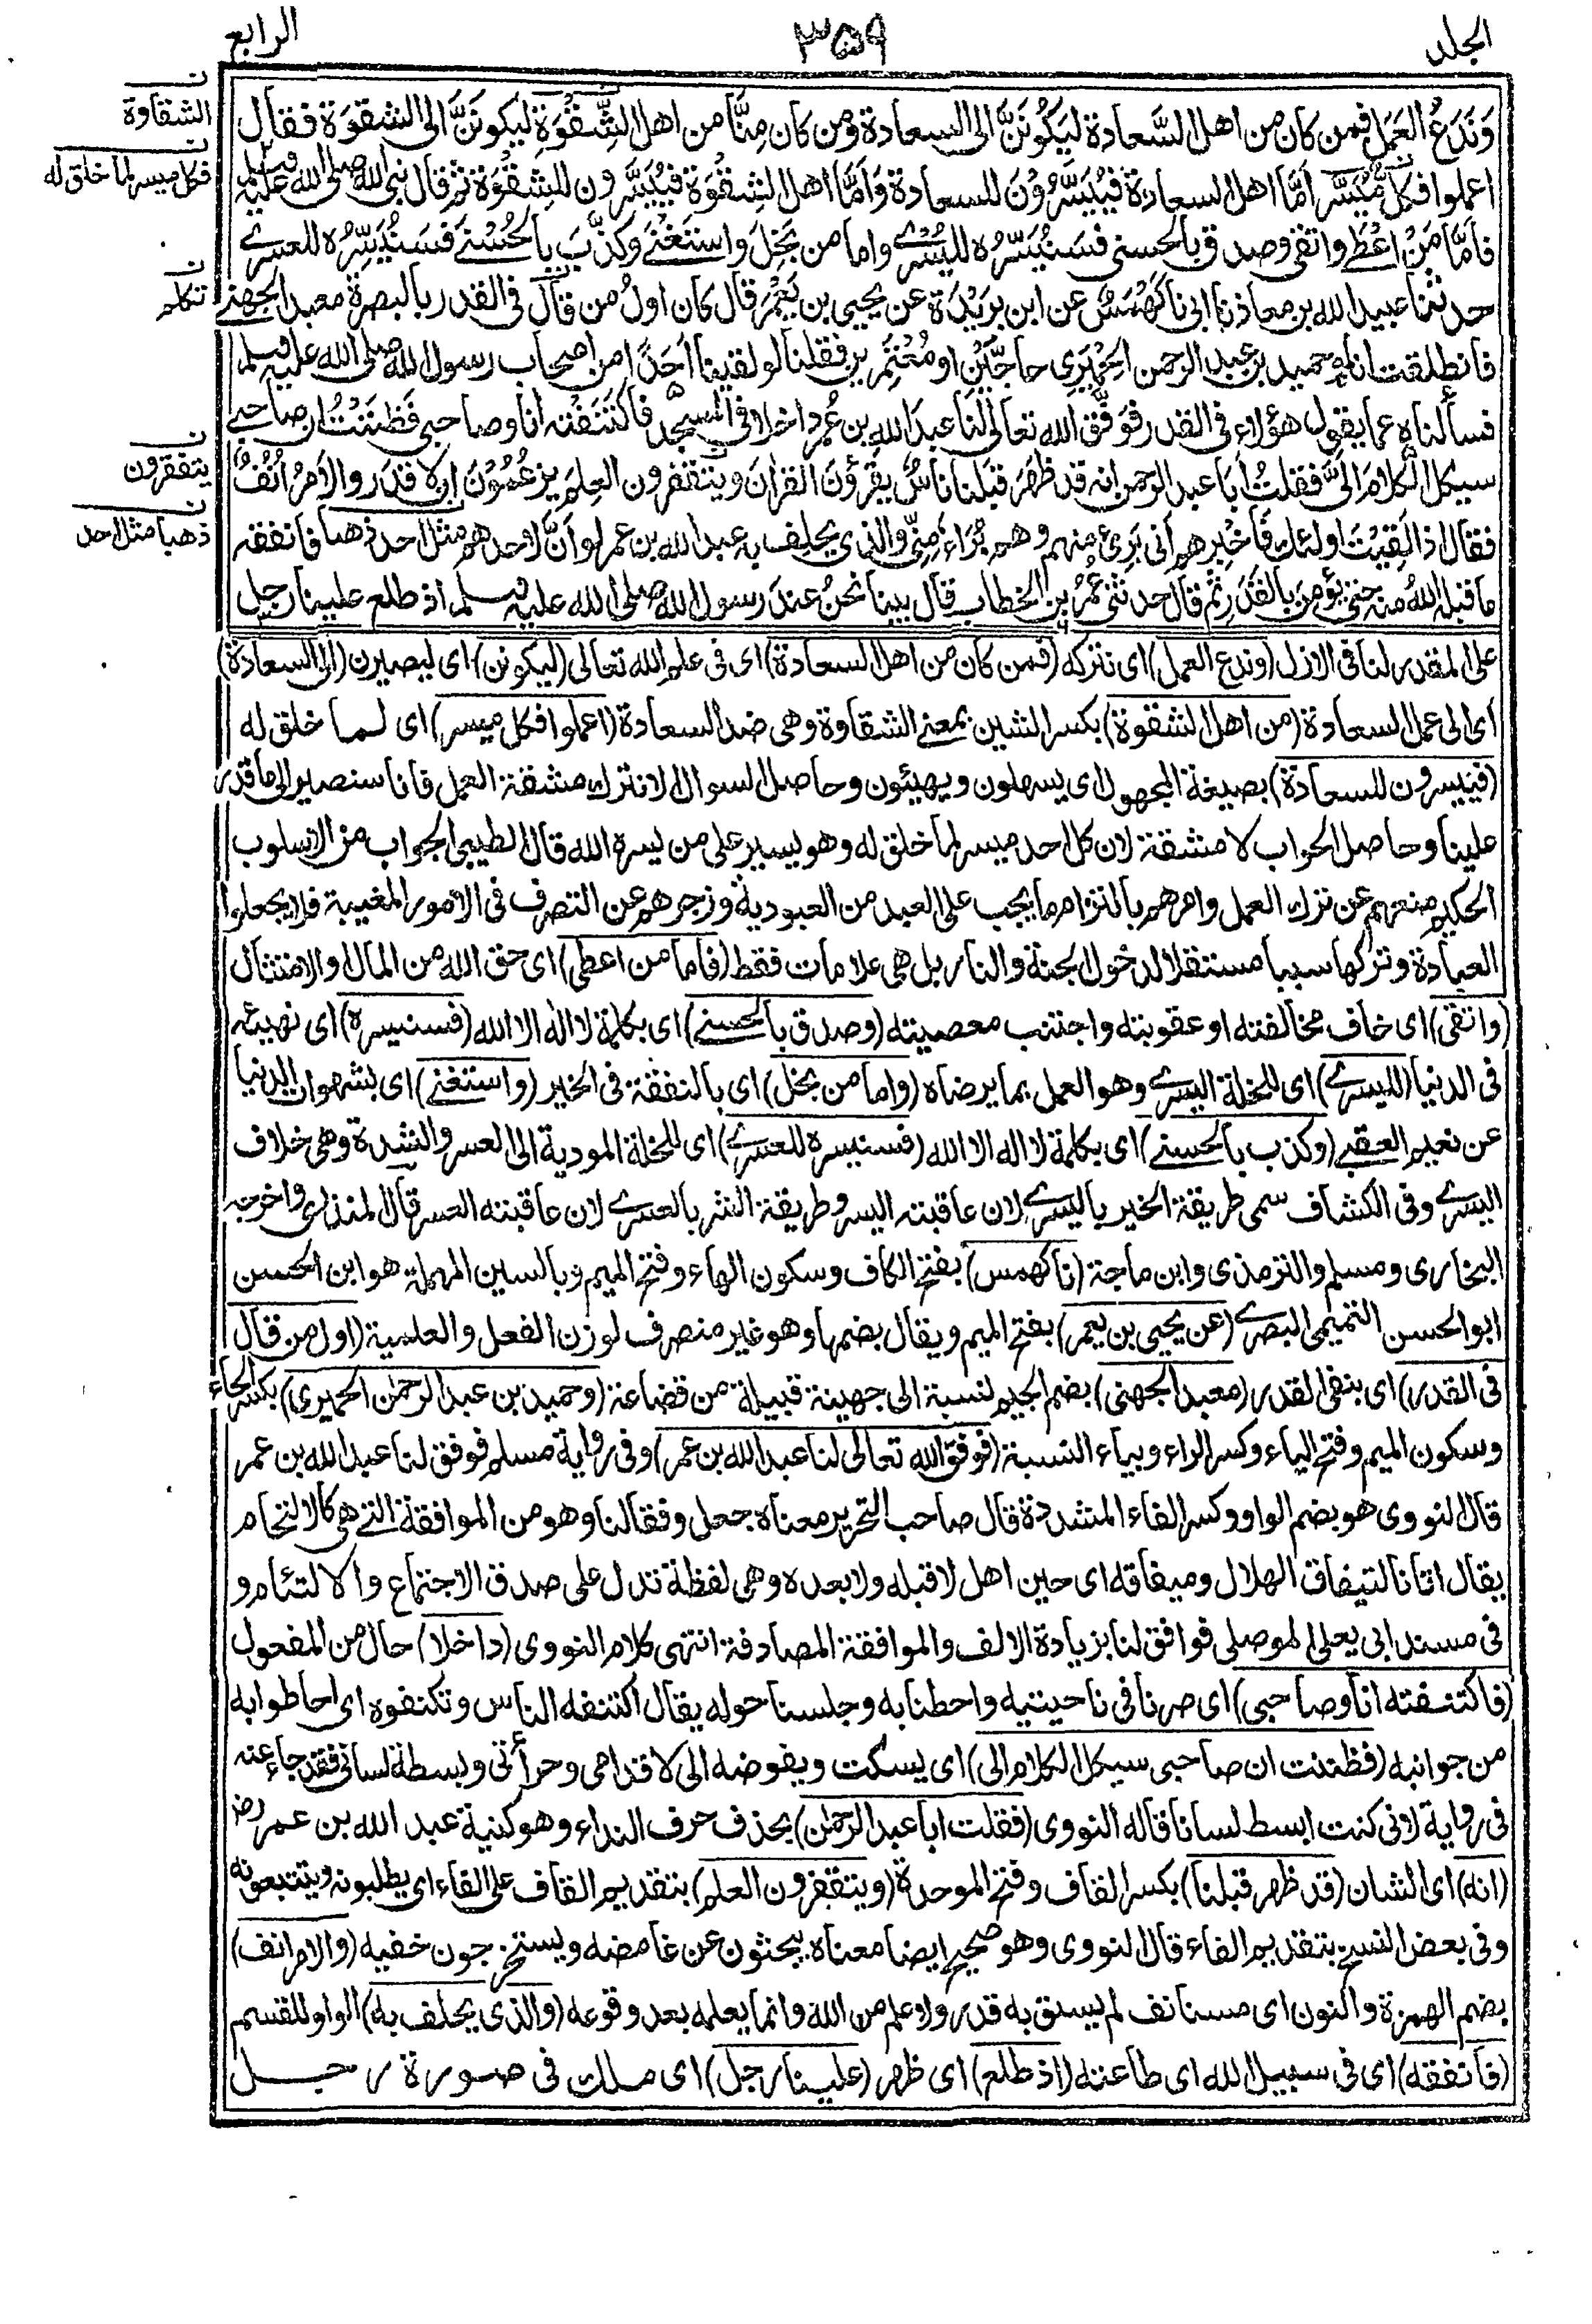 الجلد ۳۵۹ الرابع
وَنَدَعُ العَمَلَ فمن كان من اهل السَّعادة لَيَكُونَنَّ الى السعادة ومن كان مِنَّا من اهل الشِّقْوَةِ لَيَكُونَنَّ الى الشِقوَة فقال
اعملوا فكلٌّ مُيَسَّر اَمَّا اهل السعادة فيُيَسَّرُوْنَ للسعادة وَاَمَّا اهل الشِقْوَةِ فيُيَسَّرون للشِقْوَة ثم قال نبى الله صلى الله عليه وسلم
فاَمَّا مَنْ اَعْطٰے واتقى وصدق بالحسنى فسَنُيَسِّرُه لليُسْرٰے واما من بَخِلَ واستَغْنٰے وكذَّبَ بالحُسْنٰے فسَنُيَسِّرُه للعسرٰے
حدثنا عبيد الله بن معاذ نا ابى نا كَهْمَسٌ عن ابن بُرَيْدَة عن يحيى بن يَعْمَرَ قال كان اولُ من قال فى القدر بالبصرة معبد الجهنے
فانطلقت انا وحميد بن عبد الرحمن الحِمْيَرِي حاجَّيْنِ او مُعْتَمِرين فقلنا لو لقينا اَحَدًا من اصحاب رسول الله صلى الله عليه وسلم
فسألناه عما يقول هؤلاء فى القدر فوَفَّقَ الله تعالى لنا عبدَ الله بن عُمر داخلا فى المسجد فاكتَنَفْتُه انا وصاحبى فظَنَنْتُ ان صاحبے
سيكل الكلامَ اِلَىَّ فقلتُ اَبَا عبد الرحمن انه قد ظَهَرَ قِبَلَنا ناسٌ يقرَؤُنَ القراٰنَ ويتقفرون العِلمَ يزعُمُوْنَ ان لا قدَر والاَمرُ اُنُفٌ
فقال اذا لَقِيْتَ اولئك فَاَخْبِرهم اَنى بَرِىٌٔ منهم وهم بُرَاءٌ مِنّى والذى يحلِف به عبد الله بن عمر لو اَنَّ لاحدهم مثل احد ذهبا فانفقه
ما قبلہ اللهُ منه حتى يؤمن بالقدَر ثم قال حدثنى عُمر بن الخطاب قال بينا نحنُ عند رسول الله صلى الله عليه وسلم اذ طلع علينا رجل
على المقدر لنا فى الازل (وندع العمل) اى نتركه (فمن كان من اهل السعادة) اى فى علم الله تعالى (ليكونن) اى ليصيرن (الى السعادة)
اى الى عمل السعادة (من اهل الشقوة) بكسر الشين بمعنے الشقاوة وهى ضد السعادة (اعملوا فكل ميسر) اى لما خلق له
(فييسرون للسعادة) بصيغة المجهول اى يسهلون ويهيئون وحاصل السوال الا نترك مشقة العمل فانا سنصير الى ما قدر
علينا وحاصل الجواب لا مشقة لان كل احد ميسر لما خلق له وهو يسير على من يسره الله قال الطيبى الجواب من الاسلوب
الحكيم منعهم عن ترك العمل وامرهم بالتزام ما يجب على العبد من العبودية وزجرهم عن التصرف فى الامور المغيبة فلا يجعلوا
العبادة وتركها سببا مستقلا لدخول الجنة والنار بل هى علامات فقط (فاما من اعطى) اى حق الله من المال والامتثال
(واتقى) اى خاف مخالفته او عقوبته واجتنب معصيته (وصدق بالحسنے) اى بكلمة لا اله الا الله (فسنيسره) اى نهيئه
فى الدنيا (لليسرے) اى للخلة اليسرے وهو العمل بما يرضاه (واما من بخل) اى بالنفقة فى الخير (واستغنے) اى بشهوات الدنيا
عن نعيم العقبے (وكذب بالحسنے) اى بكلمة لا اله الا الله (فسنيسره للعسرے) اى للخلة المودية الى العسر والشدة وهى خلاف
اليسرے وفى الكشاف سمى طريقة الخير باليسرے لان عاقبته اليسر وطريقة الشر بالعسرے لان عاقبته العسر قال المنذرى واخرجه
البخارى ومسلم والترمذى وابن ماجة (نا كهمس) بفتح الكاف وسكون الهاء وفتح الميم وبالسين المهملة هو ابن الحسن
ابو الحسن التميمى البصرے (عن يحيى بن يعمر) بفتح الميم ويقال بضمها وهو غير منصرف لوزن الفعل والعلمية (اول من قال
فى القدر) اى بنفى القدر (معبد الجهنى) بضم الجيم نسبة الى جهينة قبيلة من قضاعة (وحميد بن عبد الرحمن الحميرى) بكسر الحاء
وسكون الميم وفتح الياء وكسر الراء وبياء النسبة (فوفق الله تعالى لنا عبد الله بن عمر) وفى رواية مسلم فوفق لنا عبد الله بن عمر
قال النووى هو بضم الواو وكسر الفاء المشددة قال صاحب التحرير معناه جعل وفقا لنا وهو من الموافقة التے هى كالالتحام
يقال اتانا لتيفاق الهلال وميفاقه اى حين اهل لا قبله ولا بعده وهى لفظة تدل على صدق الاجتماع والالتئام و
فى مسند ابى يعلى الموصلى فوافق لنا بزيادة الالف والموافقة المصادفة انتهى كلام النووى (داخلا) حال من المفعول
(فاكتنفته انا وصاحبى) اى صرنا فى ناحيتيه واحطنا به وجلسنا حوله يقال اكتنفه الناس وتكنفوه اى احاطوا به
من جوانبه (فظننت ان صاحبى سيكل الكلام الى) اى يسكت ويفوضه الى لاقدامى وجرأتى وبسطة لسانى فقد جاء عنه
فى رواية لانى كنت ابسط لسانا قاله النووى (فقلت ابا عبد الرحمٰن) بحذف حرف النداء وهو كنية عبد الله بن عمر رضـ
(انه) اى الشان (قد ظهر قبلنا) بكسر القاف وفتح الموحدة (ويتقفرون العلم) بتقديم القاف على الفاء اى يطلبونه ويتتبعونه
وفى بعض النسخ بتقديم الفاء قال النووى وهو صحيح ايضا معناه يبحثون عن غامضه ويستخرجون خفيه (والامر انف)
بضم الهمزة والنون اى مستانف لم يسبق به قدر ولا علم من الله وانما يعلمه بعد وقوعه (والذى يحلف به) الواو للقسم
(فانفقه) اى فى سبيل الله اى طاعته (اذ طلع) اى ظهر (علينا رجل) اى ملك فى صورة رجل
ن
الشقاوة
ن
فكل ميسر لما خلق له
ن
تكلم
ن
يتفقرون
ن
ذهبا مثل احد